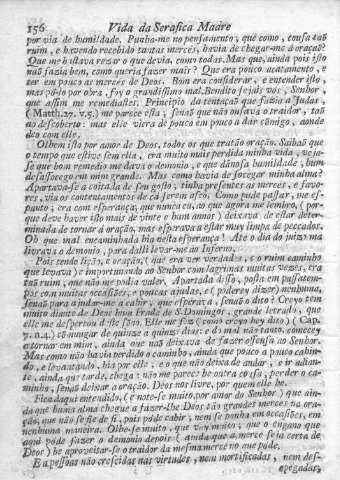 156 Vida da Serafica Madre
por via de humildade. Punha-me no pensamento, que como, cousa taõ
ruim, e havendo recebido tantas mercès, havia de chegar-me á oraçaõ?
Que me bastava rezar o que devia, como todas. Mas que, ainda pois isto
naõ fazia bem, como queria fazer mais? Que era pouco acatamento, e
ter em pouco as mercès de Deos. Bom era considerar, e entender isto,
mas pô-lo por obra, foy o grandissimo mal. Bendito sejais vós, Senhor,
que assim me remediastes. Principio da tentaçaõ que fazia a Judas,
(Matth. 27. v. 5.) me parece esta, senaõ que naõ ousava o traidor, taõ
ao descoberto: mas elle viera de pouco em pouco a dar comigo, aonde
deo com elle.
Olhem isto por amor de Deos, todos os que trataõ oraçaõ. Saibaõ que
o tempo que estive sem ella, era muito mais perdida minha vida, veja-
se que bom remedio me dava o demonio, e que danosa humildade, hum
desassocego em mim grande. Mas como havia de socegar minha alma?
Apartava-se a coitada de seu gosto, tinha presentes as mercès, e favo-
res, via os contentamentos de cá serem asco. Como pude passar, me es-
panto, era com esperança, que nunca eu, ao que agora me lembro, (por-
que deve haver isto mais de vinte e hum annos) deixava de estar deter-
minada de tornar á oraçaõ, mas esperava a estar muy limpa de peccados.
Oh que mal encaminhada hia nesta esperança! Até o dia do juizo ma
livrava o demonio, para dalli levar-me ao Inferno.
Pois tendo liçaõ, e oraçaõ, (que era ver verdades, e o ruim caminho
que levava) e importunando ao Senhor com lagrimas muitas vezes, era
taõ ruim, que me naõ podia valer. Apartada disso, posta em passatem-
pos com muitas occasiões, e poucas ajudas, e (poderey dizer) nenhuma,
senaõ para ajudar-me a cahir, que esperava, senaõ o dito? Creyo tem
muito diante de Deos hum Frade de S. Domingos, grande letrado, que
elle me despertou deste sono. Elle me fez (como creyo hey dito) (Cap.
7. n. 4.) cõmungar de quinze a quinze dias: e do mal naõ tanto, comecey
a tornar em mim, ainda que naõ deixava de fazer offensa ao Senhor.
Mas como naõ havia perdido o caminho, ainda que pouco a pouco cahin-
do, e levantando, hia por elle; e o que naõ deixa de andar, e ir adian-
te, ainda que tarde, chega: naõ me parece he outra cousa, perder o ca-
minho, senaõ deixar a oraçaõ. Deos nos livre, por quem elle he.
Fica daqui entendido, (e note-se muito, por amor do Senhor) que ain-
da que huma alma chegue a fazer-lhe Deos taõ grandes mercès na ora-
çaõ, que naõ se fie de si, pois póde cahir, nem se ponha em occasiões, em
nenhuma maneira. Olhe-se muito, que vay muito; que o engano que
aqui póde fazer o demonio depois (ainda que a mercè seja certa de
Deos) he aproveitar-se o traidor da mesma mercè no que póde.
E a pessoas naõ crescidas nas virtudes, nem mortificadas, nem des-
apegadas,